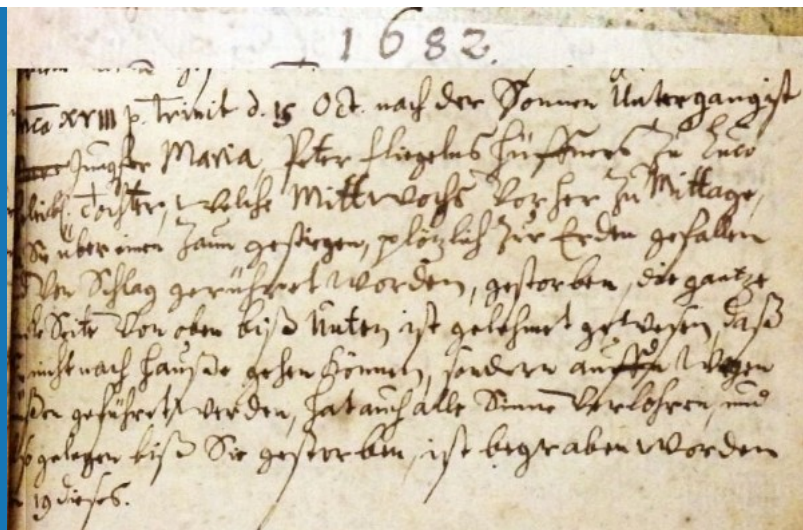 1682.
XVIII p. Trinit d. 15 Oct. nach der Sonnen Untergang ist
Jungfer Maria, Peter Fliegelns Hüffners zu
Tochter, welche Mittwochs Vorher zu Mittage,
Sie über einen Zaun gestiegen, plötzlich zur Erden gefallen
Vom Schlag gerühret worden, gestorben, die gantze
Seite Von oben biß Unten ist gelehmet gewesen, daß
nicht nach Hauße gehen können, sondern auffn Wagen
geführet werden, hat auch alle Sinne Verlohren, und
gelegen biß Sie gestorben, ist begraben worden
19 dieses.